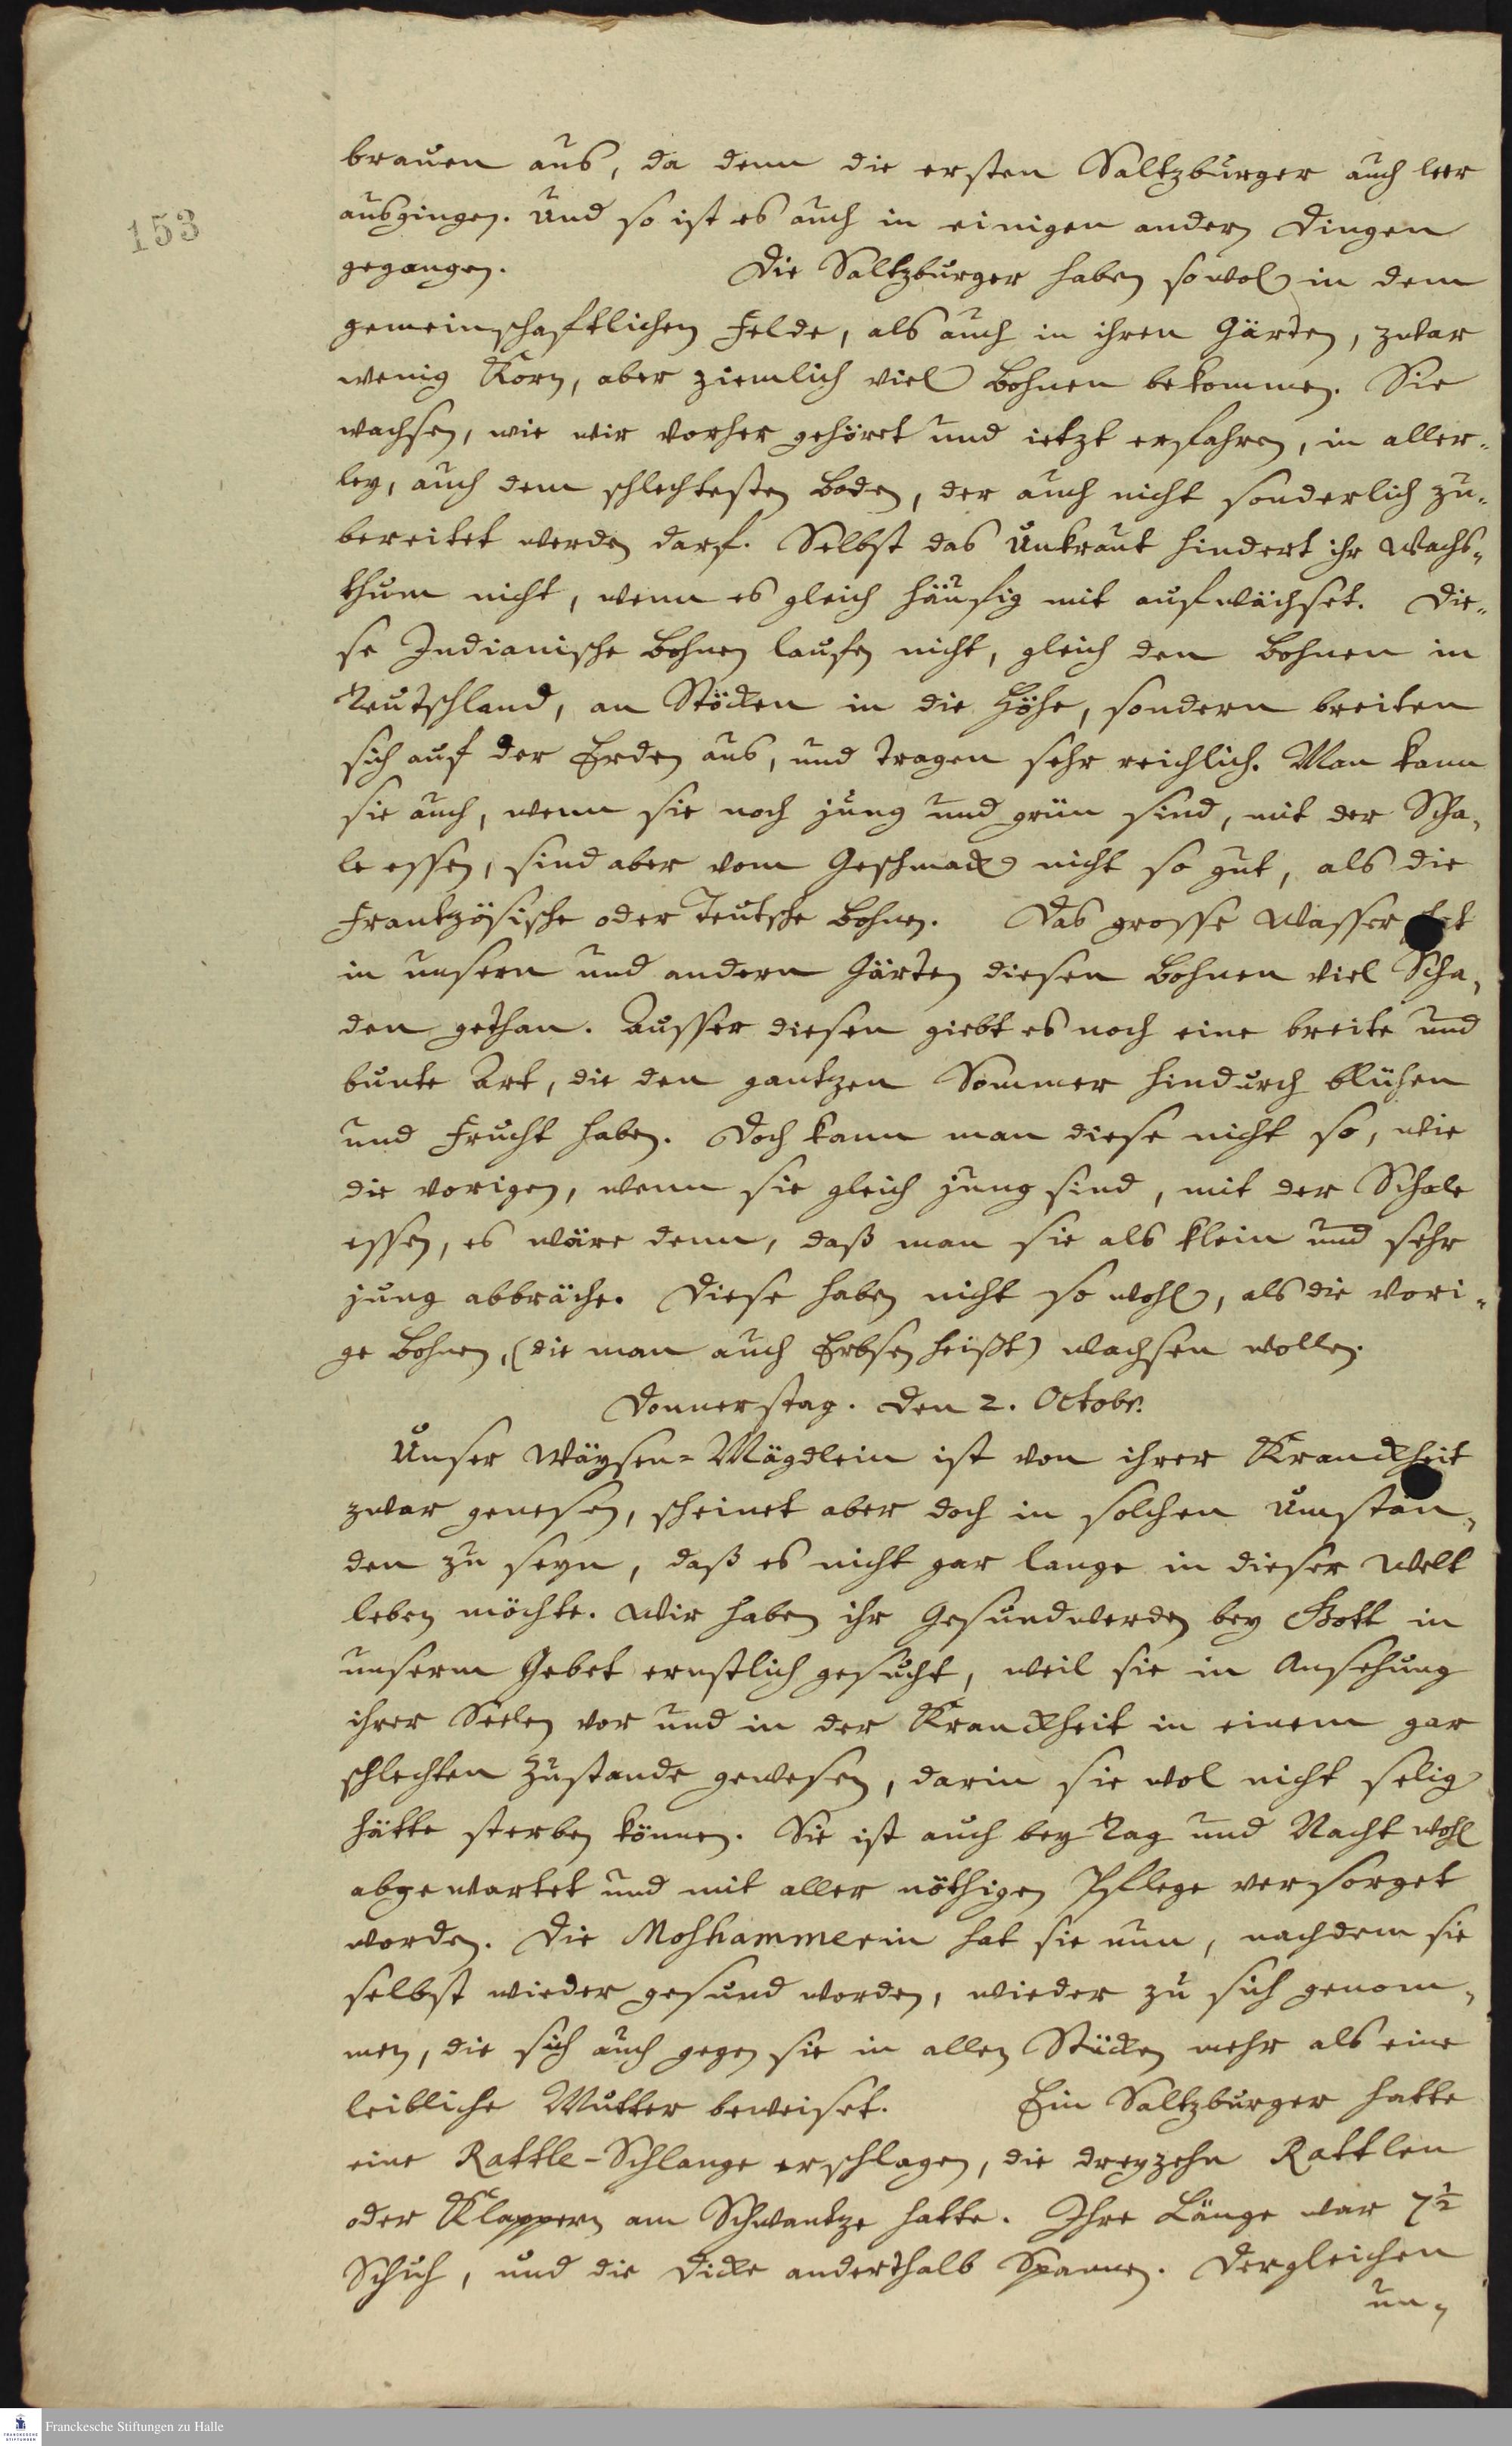 brauen aus, da denn die ersten Saltzburger auch leer
ausgingen. Und so ist es auch in einigen andern Dingen
gegangen. Die Saltzburger haben sowol in dem
gemeinschafftlichen Felde, als auch in ihren Gärten, zwar
wenig Korn, aber ziemlich viel Bohnen bekommen. Sie
wachsen, wie wir vorher gehöret und ietzt erfahren, in aller-
ley, auch dem schlechtesten Boden, der auch nicht sonderlich zu-
bereitet werden darf. Selbst das Unkraut hindert ihr Wachs-
thum nicht, wenn es gleich häufig mit aufwächset. Die-
se Indianische Bohnen laufen nicht, gleich den Bohnen in
Teutschland, an Stöcken in die Höhe, sondern breiten
sich auf der Erden aus, und tragen sehr reichlich. Man kann
sie auch, wenn sie noch jung und grün sind, mit der Scha-
le essen, sind aber vom Geschmack nicht so gut, als die
Frantzösische oder Teutsche Bohnen. Das grosse Wasser hat
in unsern und andern Gärten diesen Bohnen viel Scha-
den gethan. Ausser diesen giebt es noch eine breite und
bunte Art, die den gantzen Sommer hindurch blühen
und Frucht haben. Doch kann man diese nicht so, wie
die vorigen, wenn sie gleich jung sind, mit der Schale
essen, es wäre denn, daß man sie als klein und sehr
jung abbräche. Diese haben nicht so wohl, als die vori-
ge Bohnen, (die man auch Erbsen heißt) wachsen wollen.
Donnerstag. den 2. Octobr.
Unser Wäysen-Mägdlein ist von ihrer Kranckheit
zwar genesen, scheinet aber doch in solchen Umstän-
den zu seyn, daß es nicht gar lange in dieser Welt
leben möchte. Wir haben ihr Gesundwerden bey Gott in
unserm Gebet ernstlich gesucht, weil sie in Ansehung
ihrer Seelen vor und in der Kranckheit in einem gar
schlechten Zustande gewesen, darin sie wol nicht selig
hätte sterben können. Sie ist auch bey Tag und Nacht wohl
abgewartet und mit aller nöthigen Pflege versorget
worden. Die Moshammerin hat sie nun, nachdem sie
selbst wieder gesund worden, wieder zu sich genom-
men, die sich auch gegen sie in allen Stücken mehr als eine
leibliche Mutter beweiset. Ein Saltzburger hatte
eine Rattle-Schlange erschlagen, die dreyzehn Rattlen
oder Klappern am Schwantze hatte. Ihre Länge war 7 1/2
Schuh, und die Dicke anderthalb Spannen. Dergleichen
un-
153
Franckesche Stiftungen zu Halle
FRANCKESCHE
STIFTUNGEN